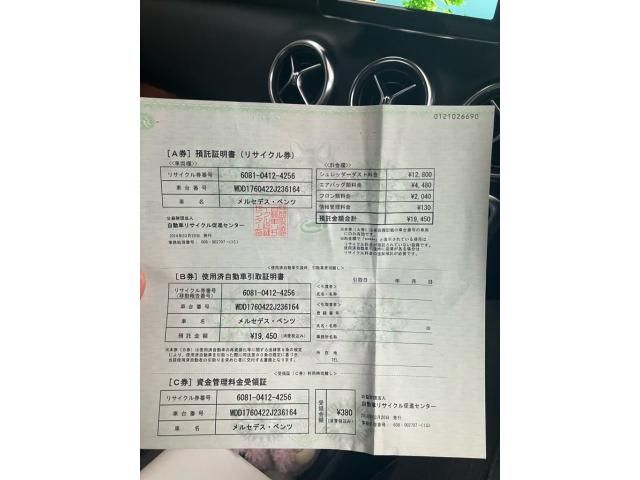 0121026690
[A券] 預託証明書(リサイクル券)
<<車両欄>>
リサイクル券番号 6081-0412-4256
車台番号 WDD1760422J236164
車名 メルセデス・ベンツ
公益財団法人
自動車リサイクル促進センター
<<料金欄>>
シュレッダーダスト料金 ¥12,800
エアバッグ類料金 ¥4,480
フロン類料金 ¥2,040
情報管理料金 ¥130
預託金額合計 ¥19,450
[B券] 使用済自動車引取証明書
リサイクル券番号
(移動報告番号) 6081-0412-4256
車台番号 WDD1760422J236164
車名 メルセデス・ベンツ
預託金額 ¥19,450 (消費税込み)
引取日 年 月 日
<引渡者>
氏名・名称
<引取業者>
登録番号
氏名・名称 印
所在地
TEL
[C券] 資金管理料金受領証
リサイクル券番号 6081-0412-4256
車台番号 WDD1760422J236164
車名 メルセデス・ベンツ
受領金額 ¥380
(消費税込み)
公益財団法人
自動車リサイクル促進センター